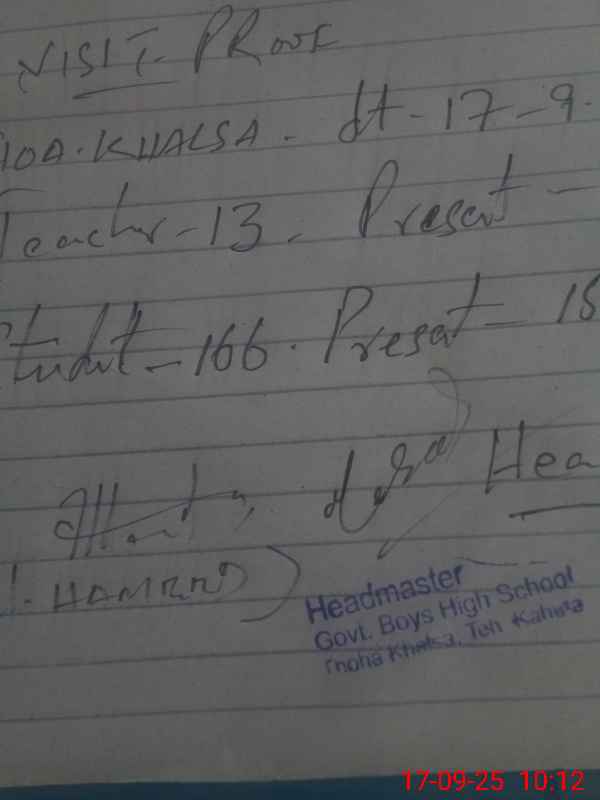 VISIT PROOF
HOA. KHALSA. dt-17-9.
Teacher-13. Present -
Studet-166. Presat- 15
Hea
HAMEED)
Headmaster
Govt. Boys High School
Thoha Khalsa, Teh Kahuta
17-09-25 10:12